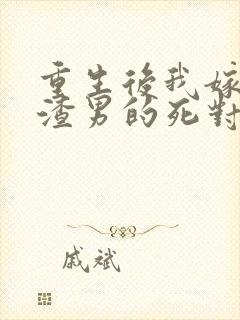 重生後我嫁
渣男的死對
戚斌